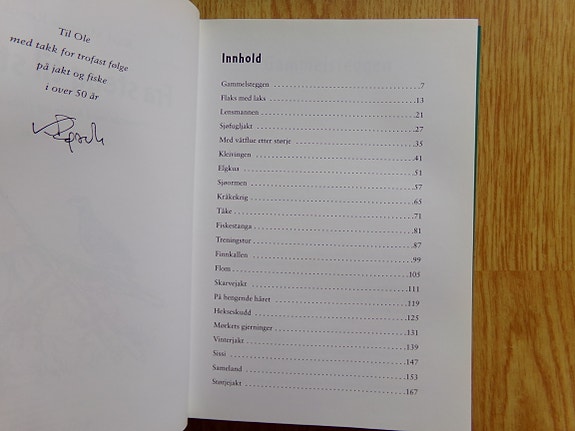 Til Ole
med takk for trofast følge
på jakt og fiske
i over 50 år
Innhold
Gammelsteggen 7
Flaks med laks 13
Lensmannen 21
Sjøfugljakt 27
Med våtflue etter størje 35
Kleivingen 41
Elgkua 51
Sjøormen 57
Kråkekrig 65
Tåke 71
Fiskestanga 81
Treningstur 87
Finnkallen 99
Flom 105
Skarvejakt 111
På hengende håret 119
Hekseskudd 125
Mørkets gjerninger 131
Vinterjakt 139
Sissi 147
Sameland 153
Størjejakt 167